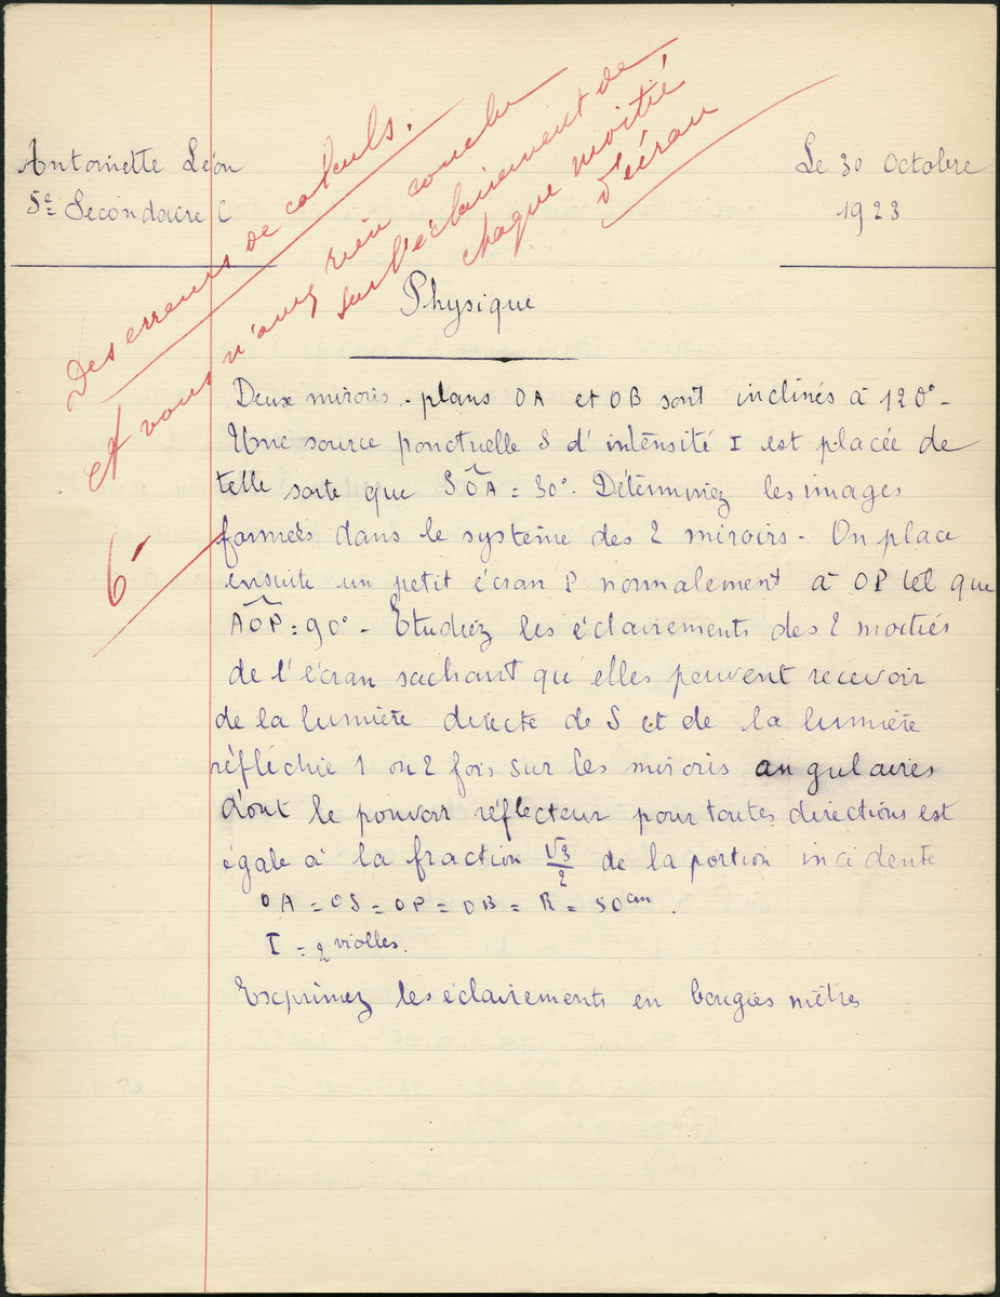 Des erreurs de calculs.
et vous n'avez rien conclu
sur l'éclairement de
chaque moitié
d'écran
6-
Antoinette Léon
5e Secondaire C
Le 30 Octobre
1923
Physique
Deux miroirs - plans OA et OB sont inclinés à 120° -
Une source ponctuelle S d'intensité I est placée de
telle sorte que SOA = 30°. Déterminez les images
formées dans le système des 2 miroirs - On place
ensuite un petit écran P normalement à OP tel que
AOP = 90° - Etudiez les éclairements des 2 moitiés
de l'écran sachant qu'elles peuvent recevoir
de la lumière directe de S et de la lumière
réfléchie 1 ou 2 fois sur les miroirs angulaires
dont le pouvoir réflecteur pour toutes directions est
égale à la fraction √3/2 de la portion incidente
OA = OS = OP = OB = R = 50 cm.
I = 2 violles.
Exprimez les éclairements en bougies mètres